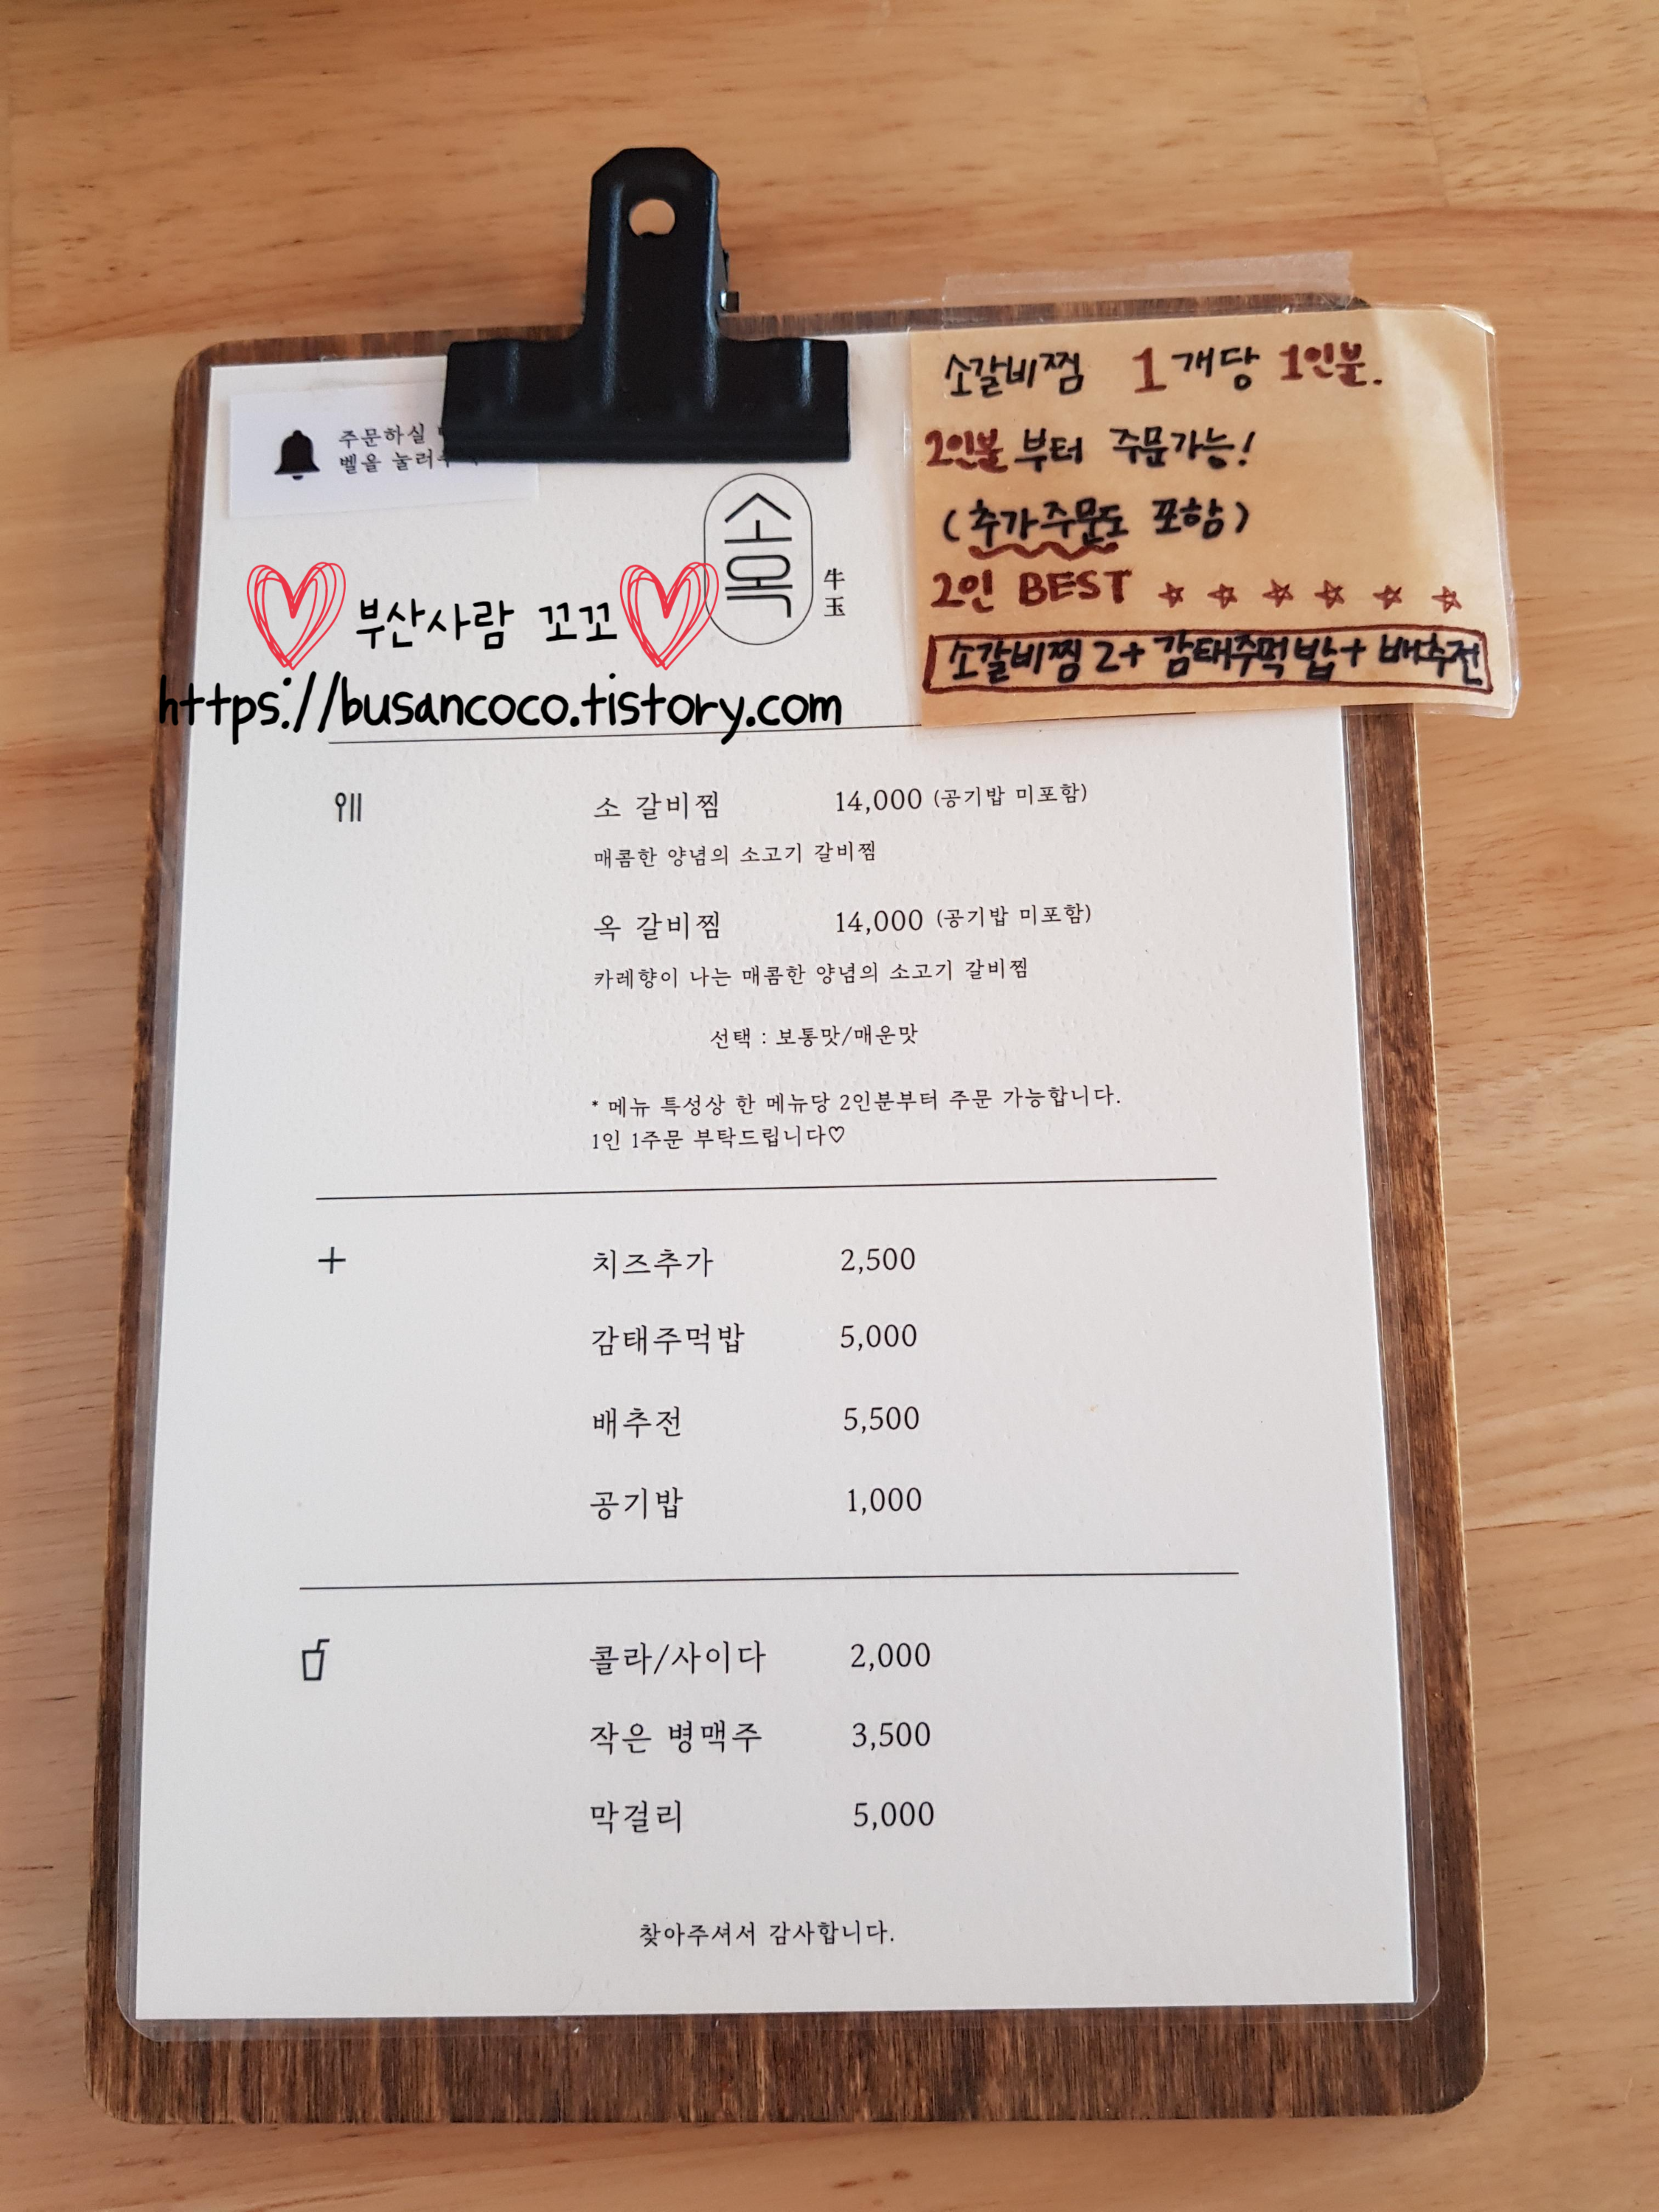 주문하실
벨을 눌러
소옥
牛玉
부산사람 꼬꼬
https://busancoco.tistory.com
소갈비찜 1개당 1인분.
2인분부터 주문가능!
(추가주문도 포함)
2인 BEST ☆ ☆ ☆ ☆ ☆ ☆
소갈비찜2+감태주먹밥+배추전
소 갈비찜 14,000 (공기밥 미포함)
매콤한 양념의 소고기 갈비찜
옥 갈비찜 14,000 (공기밥 미포함)
카레향이 나는 매콤한 양념의 소고기 갈비찜
선택 : 보통맛/매운맛
* 메뉴 특성상 한 메뉴당 2인분부터 주문 가능합니다.
1인 1주문 부탁드립니다♡
+ 치즈추가 2,500
감태주먹밥 5,000
배추전 5,500
공기밥 1,000
콜라/사이다 2,000
작은 병맥주 3,500
막걸리 5,000
찾아주셔서 감사합니다.